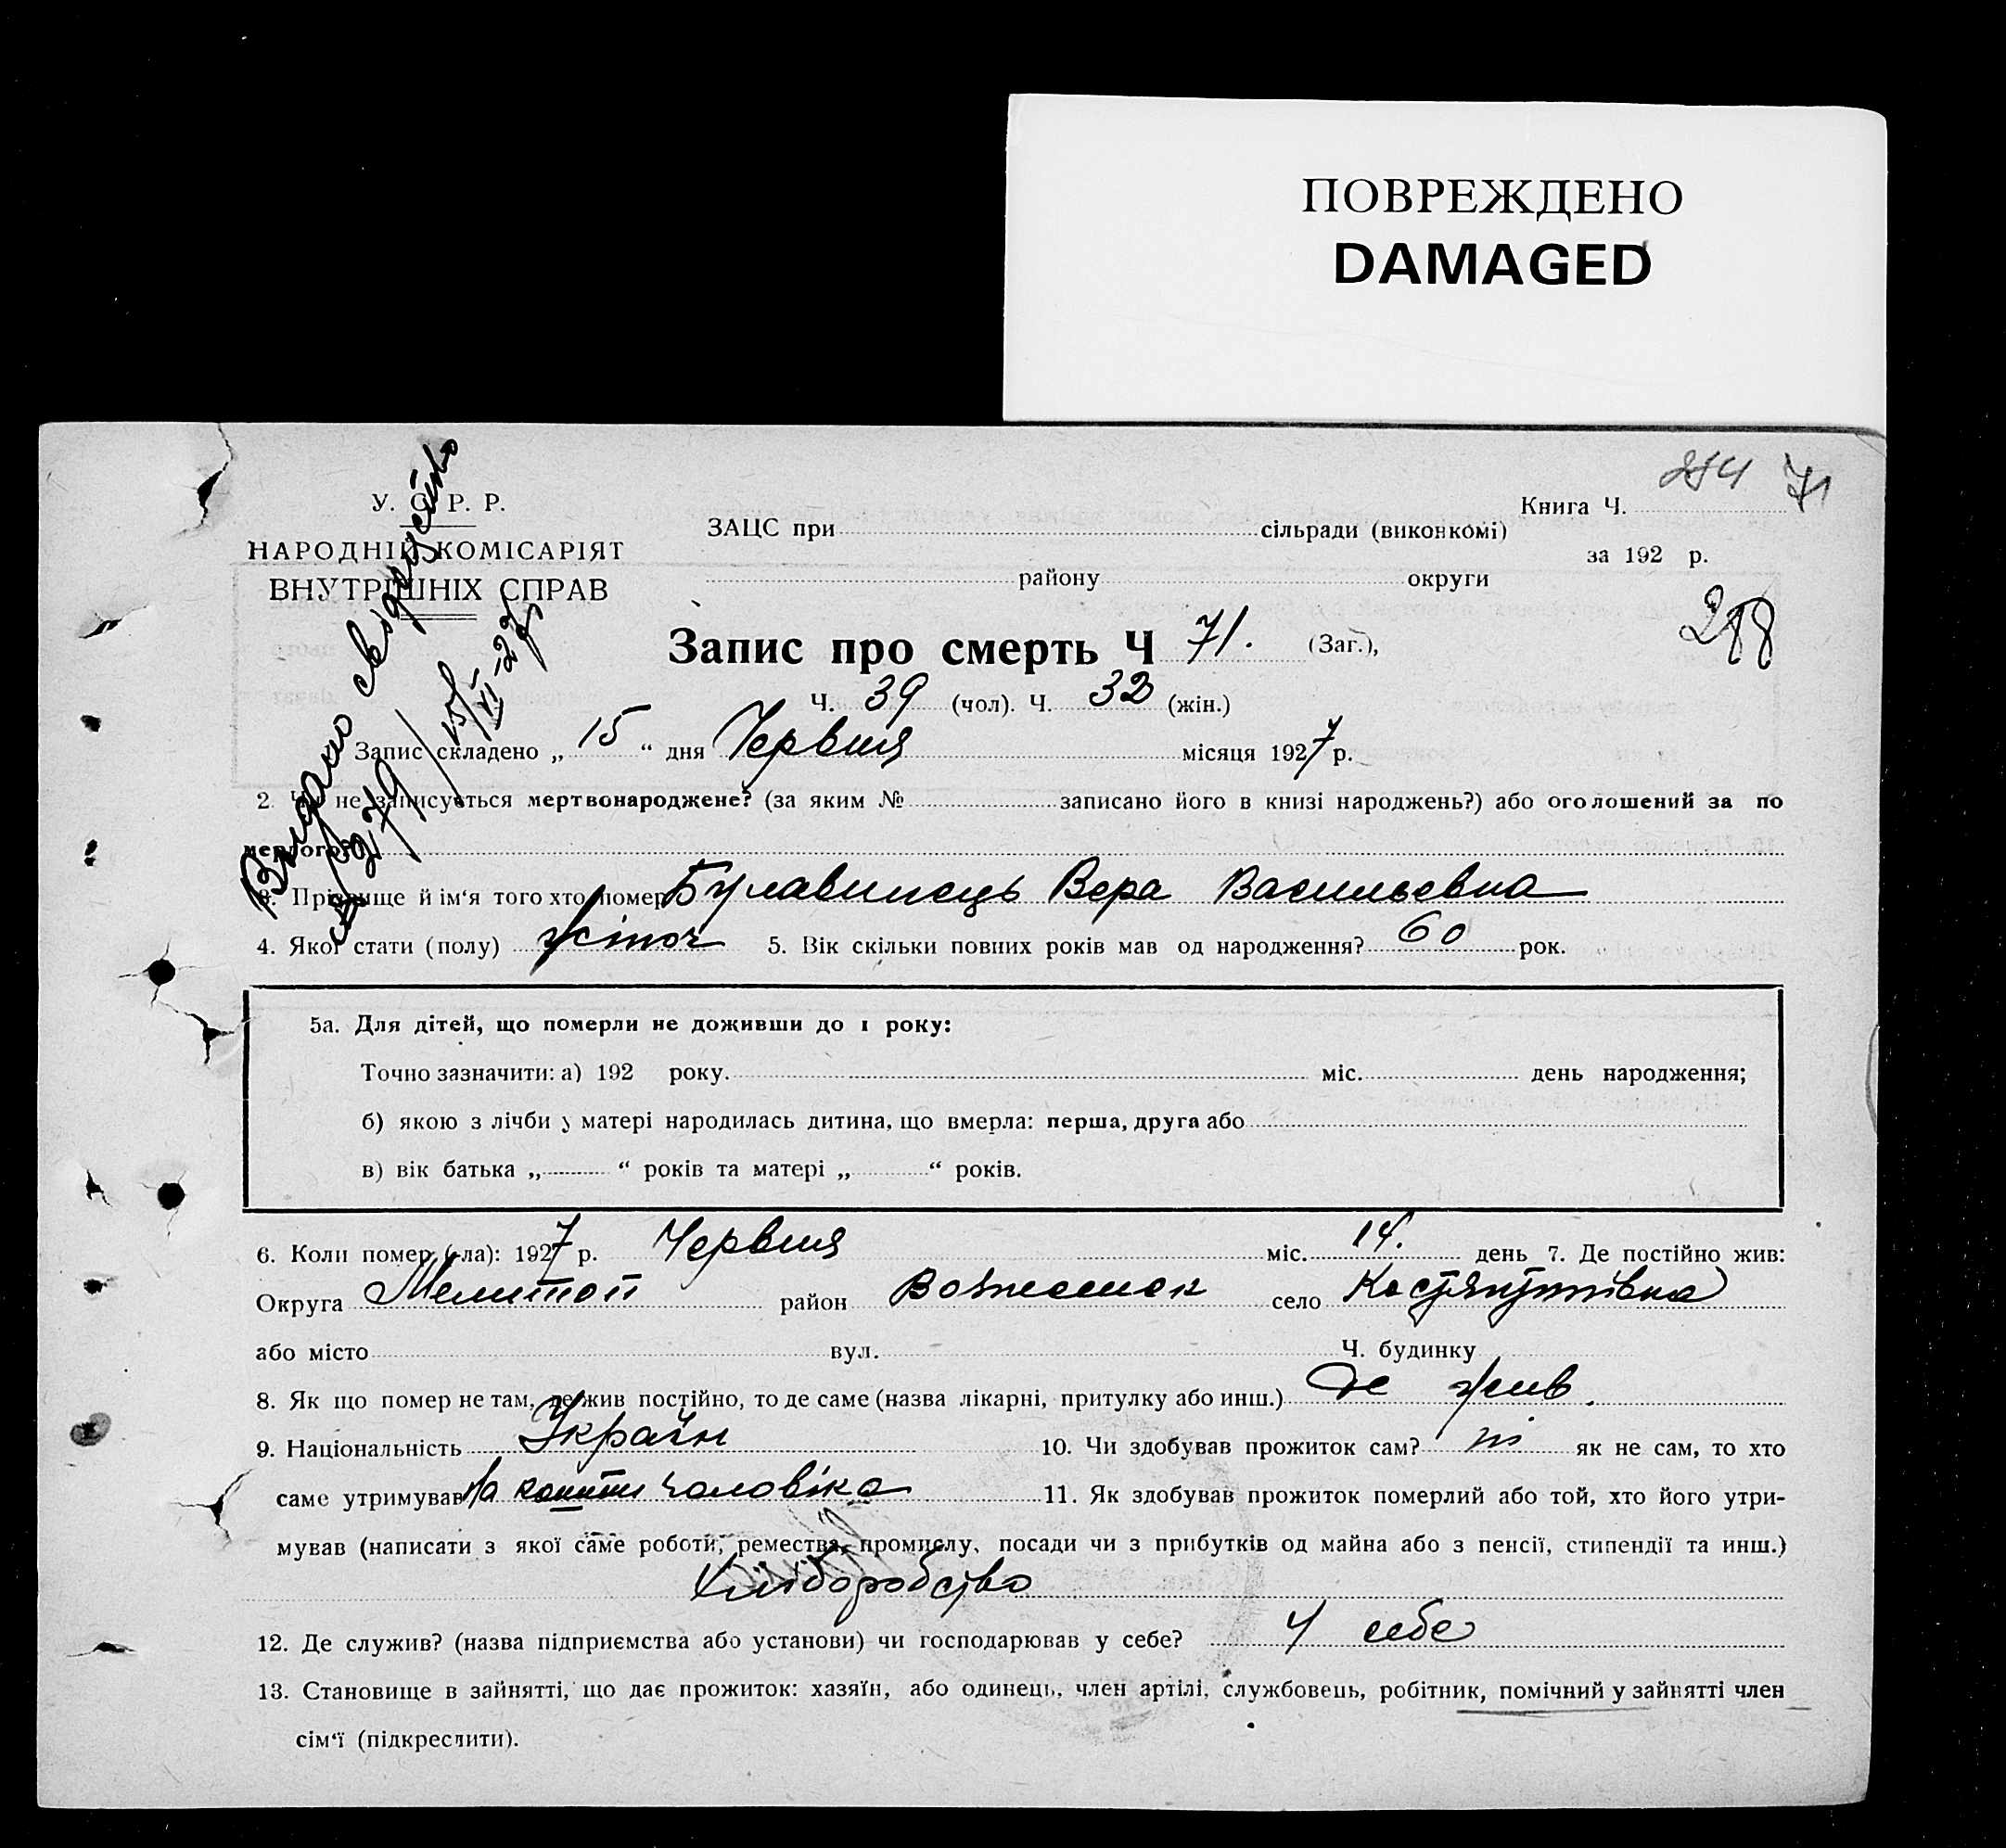 ПОВРЕЖДЕНО
DAMAGED
У. С. Р. Р.
НАРОДНІЙ КОМІСАРІЯТ
ВНУТРІШНІХ СПРАВ
Видано свідоцтво
279 / 15/VI-27р
ЗАЦС при сільради (виконкомі)
району округи
Книга Ч. 71
за 192 р.
288
Запис про смерть Ч 71. (Заг.),
Ч. 39 (чол). Ч. 32 (жін.)
Запис складено „ 15 “ дня Червня місяця 1927 р.
2. Чи не записується мертвонароджене? (за яким № записано його в книзі народжень?) або оголошений за по
мерлого?
3. Прізвище й ім‘я того хто помер Булавинець Вера Васильевна
4. Якої стати (полу) жіноч 5. Вік скільки повних років мав од народження? 60 рок.
5а. Для дітей, що померли не доживши до 1 року:
Точно зазначити: а) 192 року. міс. день народження;
б) якою з лічби у матері народилась дитина, що вмерла: перша, друга або
в) вік батька „ “ років та матері „ “ років.
6. Коли помер (-ла): 1927 р. Червня міс. 14. день 7. Де постійно жив:
Округа Мелитоп район Вознесенск село
або місто вул. Ч. будинку
8. Як що помер не там, де жив постійно, то де саме (назва лікарні, притулку або инш.) Де жив.
9. Національність Україн 10. Чи здобував прожиток сам? ні як не сам, то хто
саме утримував На кошти чоловіка 11. Як здобував прожиток померлий або той, хто його утри-
мував (написати з якої саме роботи, ремества, промислу, посади чи з прибутків од майна або з пенсії, стипендії та инш.)
Хліборобство
12. Де служив? (назва підприємства або установи) чи господарював у себе? У себе
13. Становище в зайнятті, що дає прожиток: хазяїн, або одинець, член артілі, службовець, робітник, помічний у зайнятті член
сім‘ї (підкреслити).